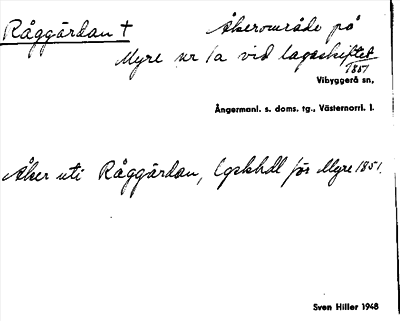 Råggärdan † Åkerområde på
Myre nr 1a vid lagaskiftet
1851
Vibyggerå sn,
Ångermanl. s. doms. tg., Västernorrl. l.
Åker uti Råggärdan, Lgskhdl för Myre 1851.
Sven Hiller 1948